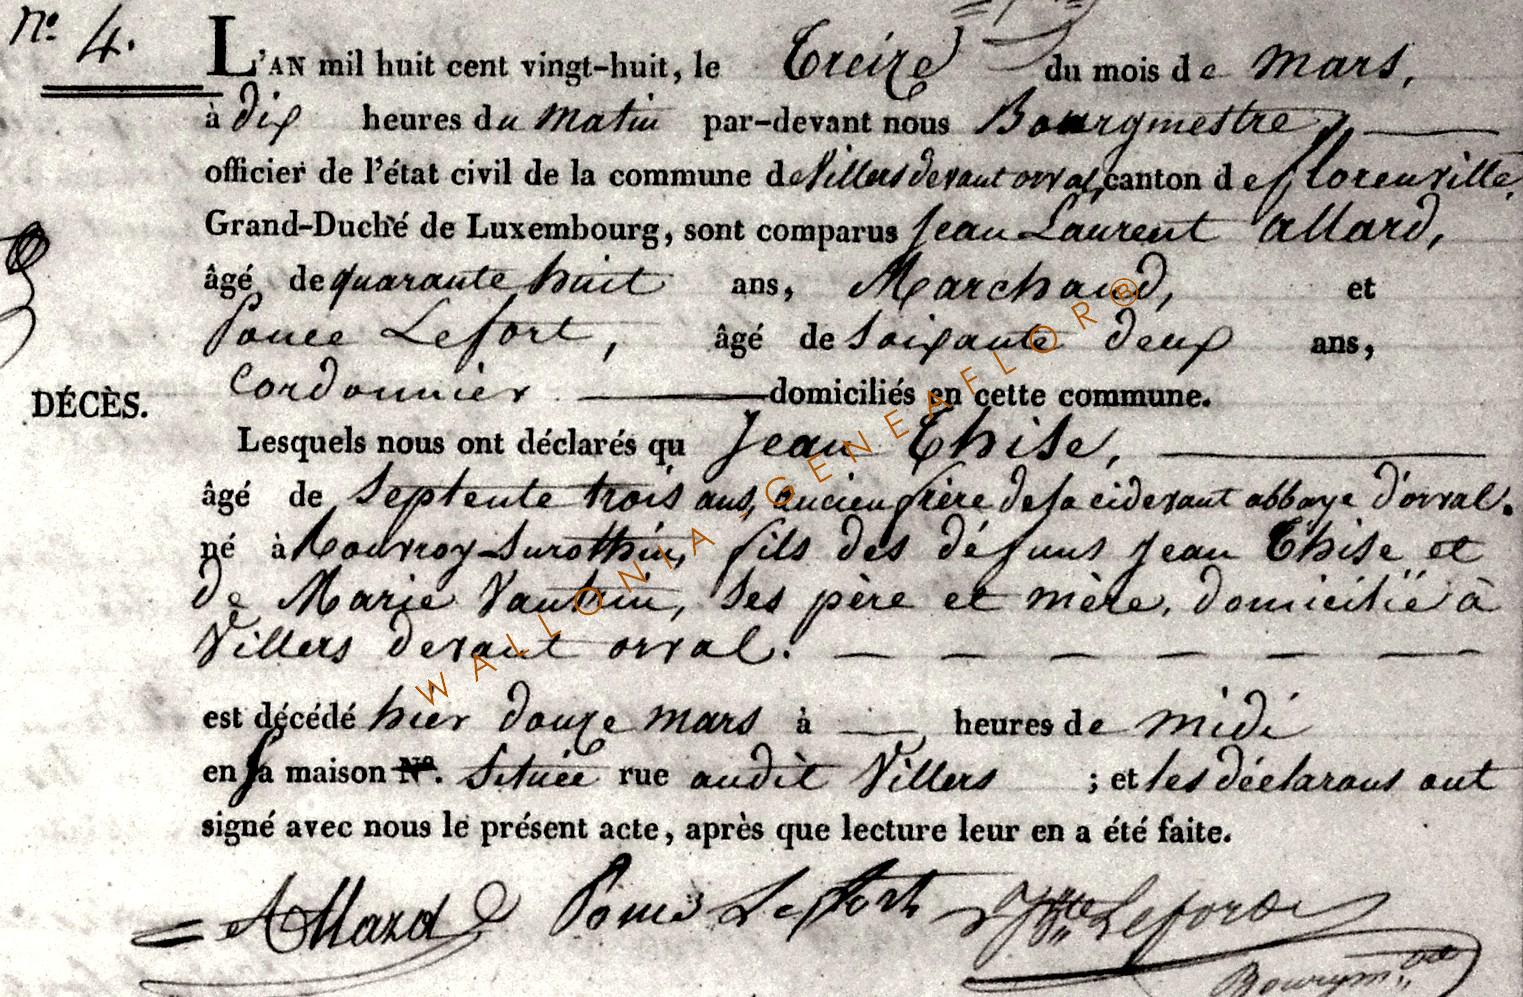 N.º 4.
L'AN mil huit cent vingt-huit, le Treize du mois de mars,
à dix heures du matin par-devant nous Bourgmestre,
officier de l'état civil de la commune de Villers devant orval, canton de florenville,
Grand-Duché de Luxembourg, sont comparus Jean Laurent allard,
âgé de quarante huit ans, Marchand, et
Ponce Lefort, âgé de soixante deux ans,
Cordonnier domiciliés en cette commune.
DÉCÈS.
Lesquels nous ont déclarés qu Jean Thise,
âgé de septente trois ans, ancien frère de la cidevant abbaye d'orval.
né à Rouvroy-surothin, fils des défuns Jean Thise et
de Marie Vautrin, ses père et mère, domicilié à
Villers devant orval.
est décédé hier douze mars à heures de midi
en sa maison Nº. située rue audit Villers ; et les déclarans ont
signé avec nous le présent acte, après que lecture leur en a été faite.
Allard Ponce Lefort Lefort
Bourgm.
WALLONIA-GENEAFLOR®